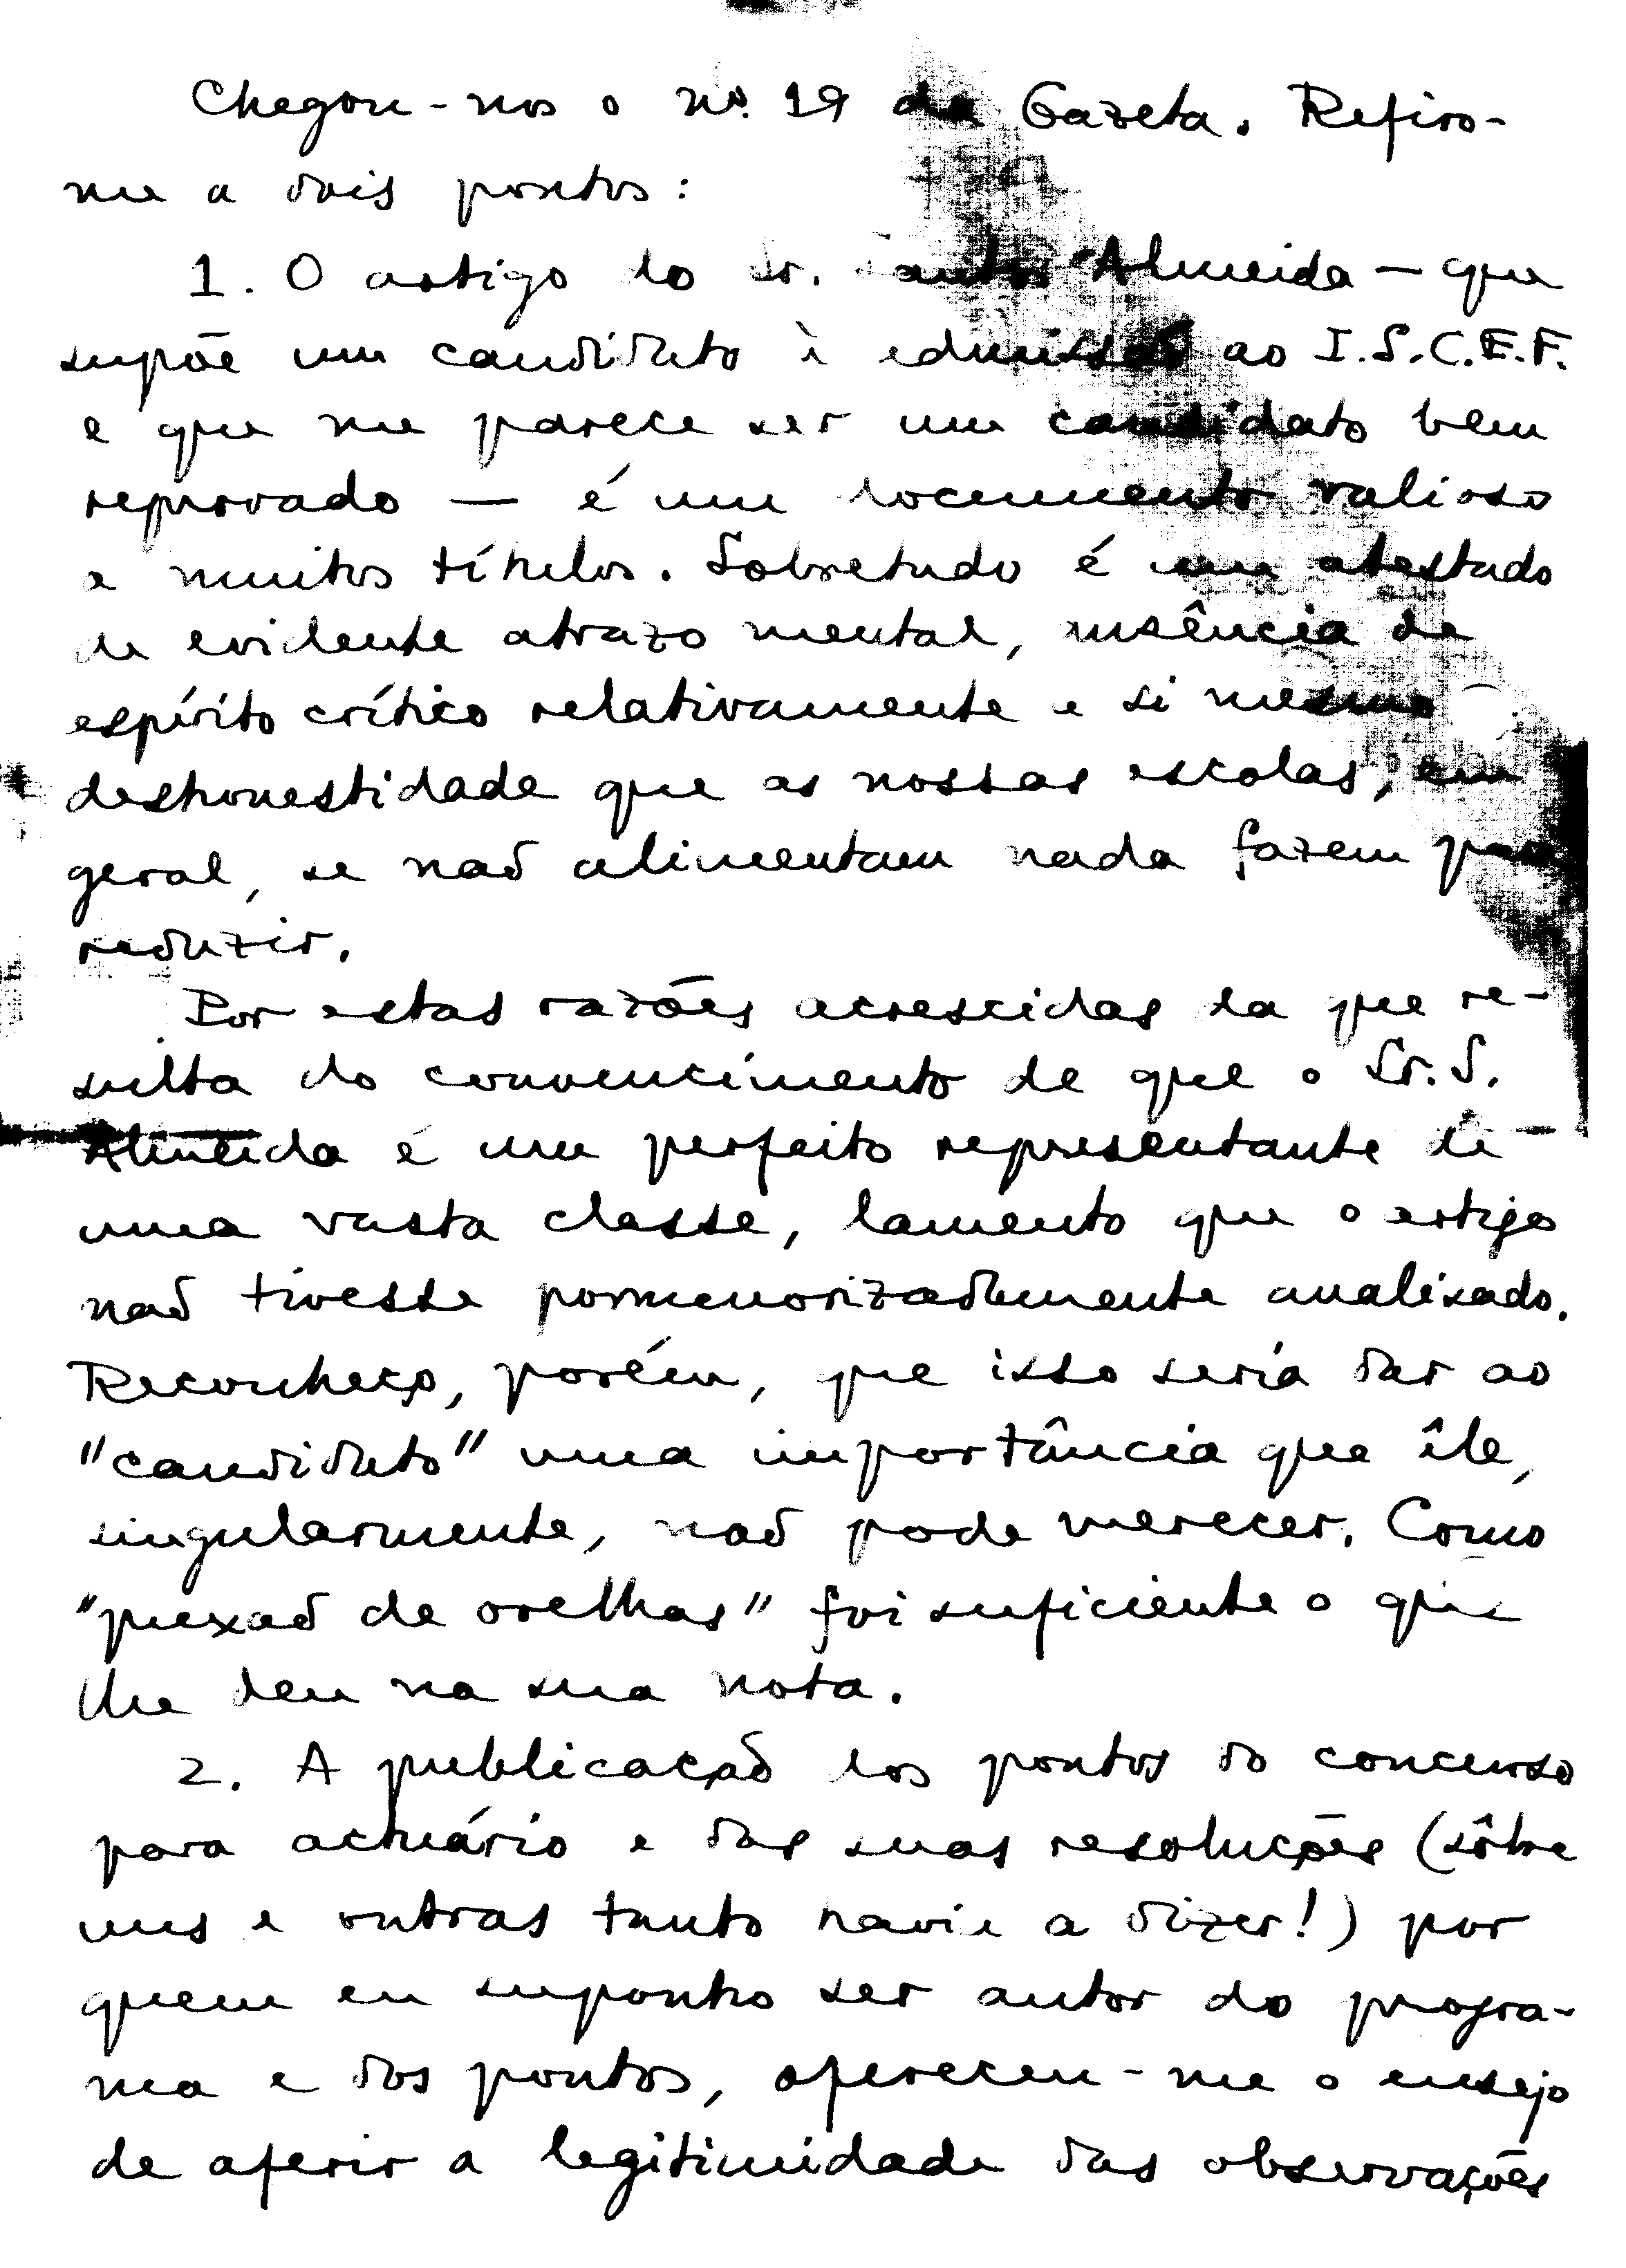 Chegou-nos o nº. 19 da Gazeta. Refiro-
me a dois pontos:
1. O artigo do Sr. Santos Almeida — que
supõe um candidato à admissão ao I.S.C.E.F.
e que me parece ser um candidato bem
reprovado — é um documento valioso
a muitos títulos. Sobretudo é um atestado
de evidente atrazo mental, ausência de
espírito crítico relativamente a si mesmo
deshonestidade que as nossas escolas, em
geral, se não alimentam nada fazem para
reduzir.
Por estas razões acrescidas da que re-
sulta do convencimento de que o Sr. S.
Almeida é um perfeito representante de
uma vasta classe, lamento que o artigo
não tivesse pormenorizadamente analisado.
Reconheço, porém, que isso seria dar ao
"candidato" uma importância que êle,
singularmente, não pode merecer. Como
"puxão de orelhas" foi suficiente o que
lhe deu na sua nota.
2. A publicação dos pontos do concurso
para actuário e das suas resoluções (sôbre
uns e outras tanto havia a dizer!) por
quem eu suponho ser autor do progra-
ma e dos pontos, ofereceu-me o ensejo
de aferir a legitimidade das observações